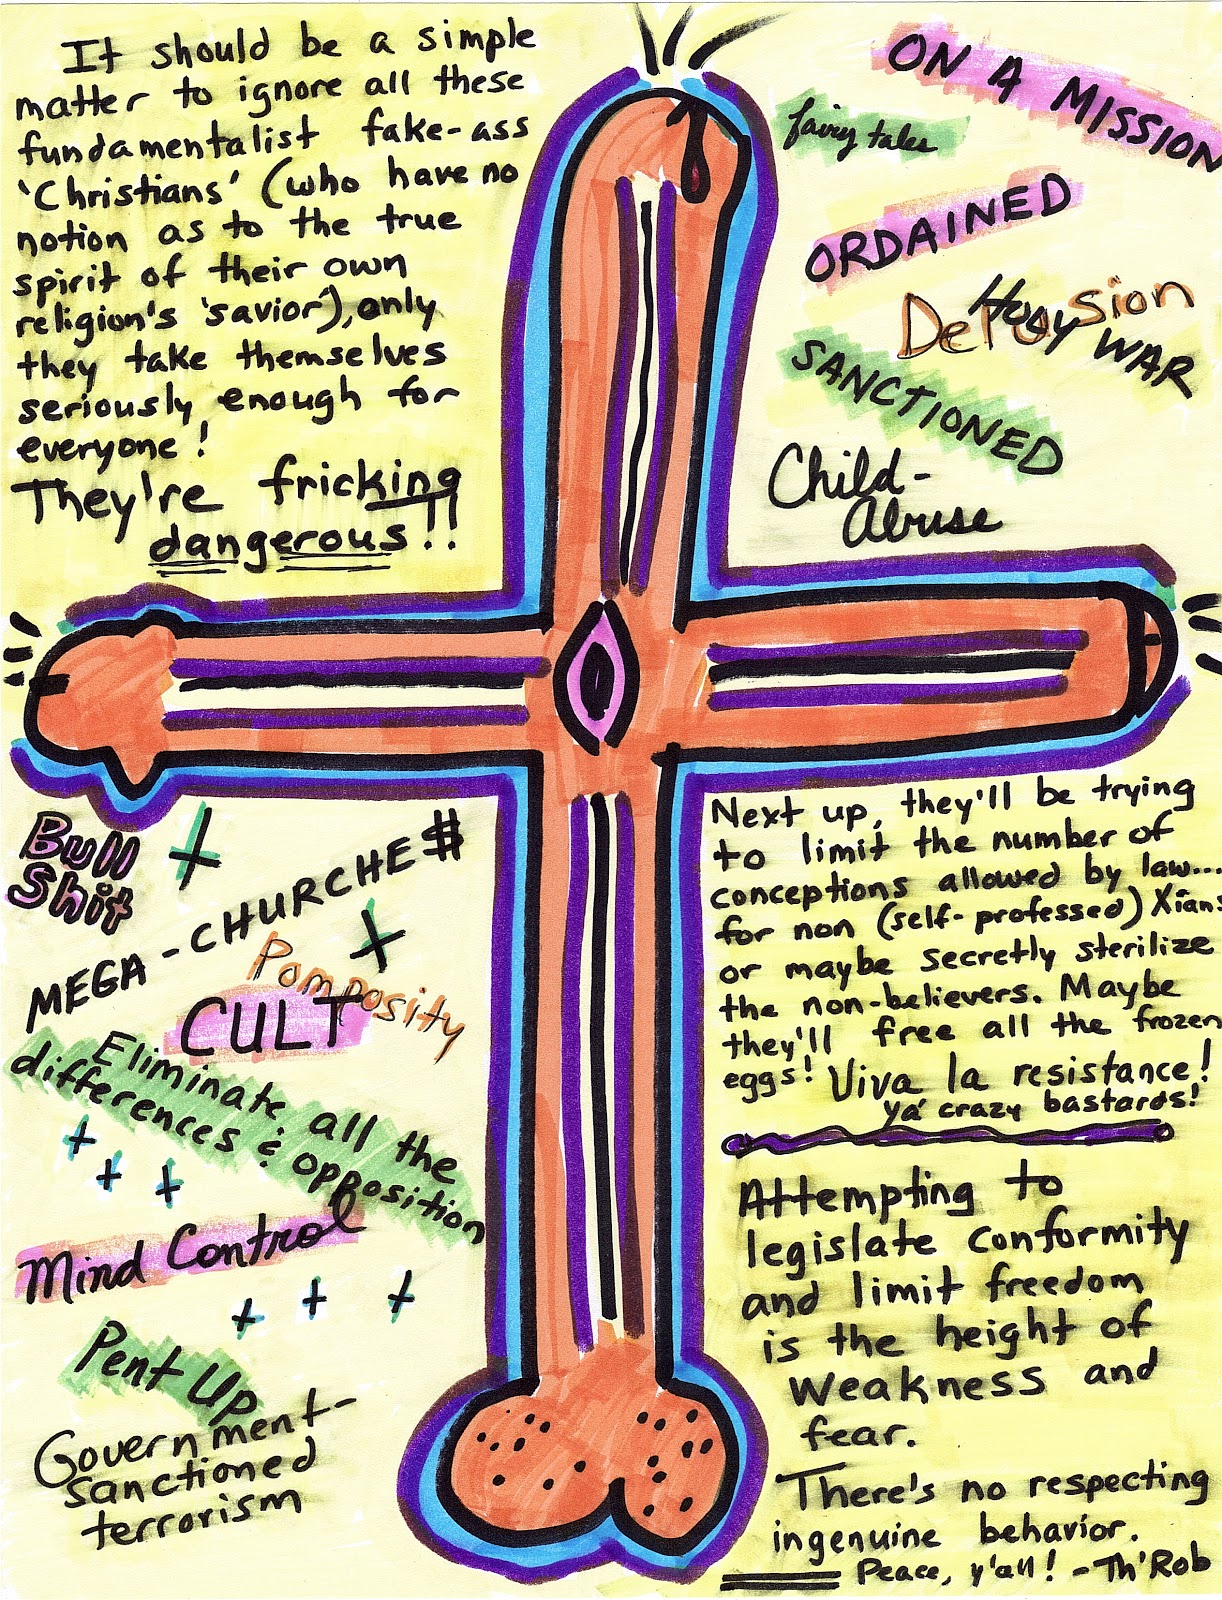 It should be a simple
matter to ignore all these
fundamentalist fake-ass
'Christians' (who have no
notion as to the true
spirit of their own
religion's 'savior'), only
they take themselves
seriously enough for
everyone!
They're fricking
dangerous!!
ON A MISSION
fairy tales
ORDAINED
Delusion
Holy WAR
SANCTIONED
Child-
Abuse
Bull
Shit
MEGA-CHURCHE$
Pomposity
CULT
Eliminate all the
differences & opposition
Mind Control
Pent Up
Government-
sanctioned
terrorism
Next up, they'll be trying
to limit the number of
conceptions allowed by law...
for non (self-professed) Xians
or maybe secretly sterilize
the non-believers. Maybe
they'll free all the frozen
eggs! Viva la resistance!
ya' crazy bastards!
Attempting to
legislate conformity
and limit freedom
is the height of
weakness and
fear.
There's no respecting
ingenuine behavior.
Peace, y'all! -Th'Rob